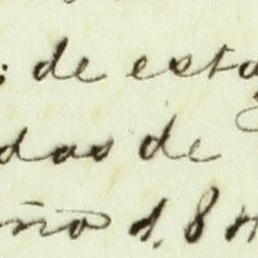 de esta
das de
año 18